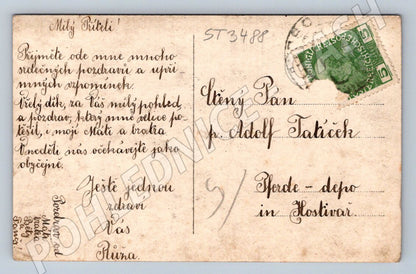 Milý Příteli!
Přijměte ode mne mnoho
srdečných pozdravů a upří-
mných vzpomínek.
Velý dík, za Váš milý pohled
a pozdrav, který mne velice po-
těšil, i moji Máti a bratra
V neděli nás očekávejte jako
obyčejně.
Ještě jednou
zdraví
Vás
Růža.
Pozdrav od
Máti
bratra
ST 3488
5
Ctěný Pán
p. Adolf Tatíček
Pferde-depo
in Hostivař
POHLEDNICE